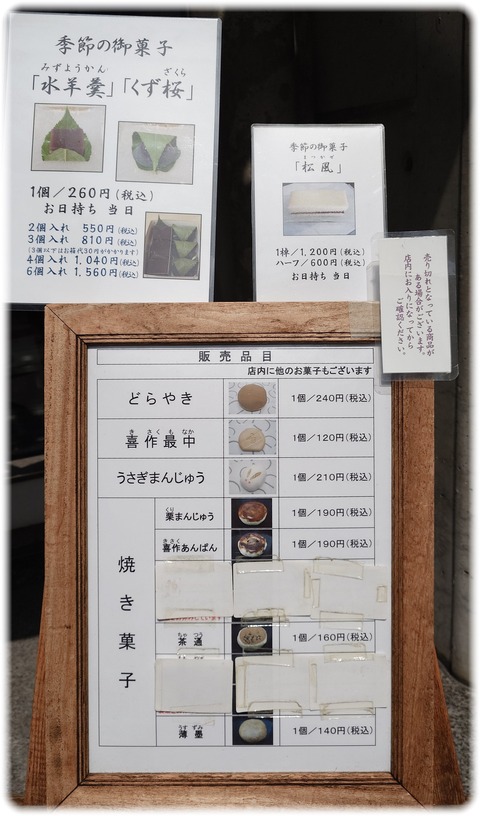 季節の御菓子
みずようかん
ざくら
「水羊羹」「くず桜」
1個／260円(税込)
お日持ち 当日
2個入れ 550円(税込)
3個入れ 810円(税込)
(3個以下はお箱代30円がかかります)
4個入れ 1,040円(税込)
6個入れ 1,560円(税込)
季節の御菓子
まつかぜ
「松風」
1棹／1,200円(税込)
ハーフ／600円(税込)
お日持ち 当日
売り切れとなっている商品が
ある場合がございます。
店内にお入りになってから
ご確認ください。
販売品目
店内に他のお菓子もございます
どらやき 1個／240円(税込)
きさくもなか
喜作最中 1個／120円(税込)
うさぎまんじゅう 1個／210円(税込)
焼き菓子
くり
栗まんじゅう 1個／190円(税込)
きさく
喜作あんぱん 1個／190円(税込)
ちゃつう
茶通 1個／160円(税込)
うすずみ
薄墨 1個／140円(税込)